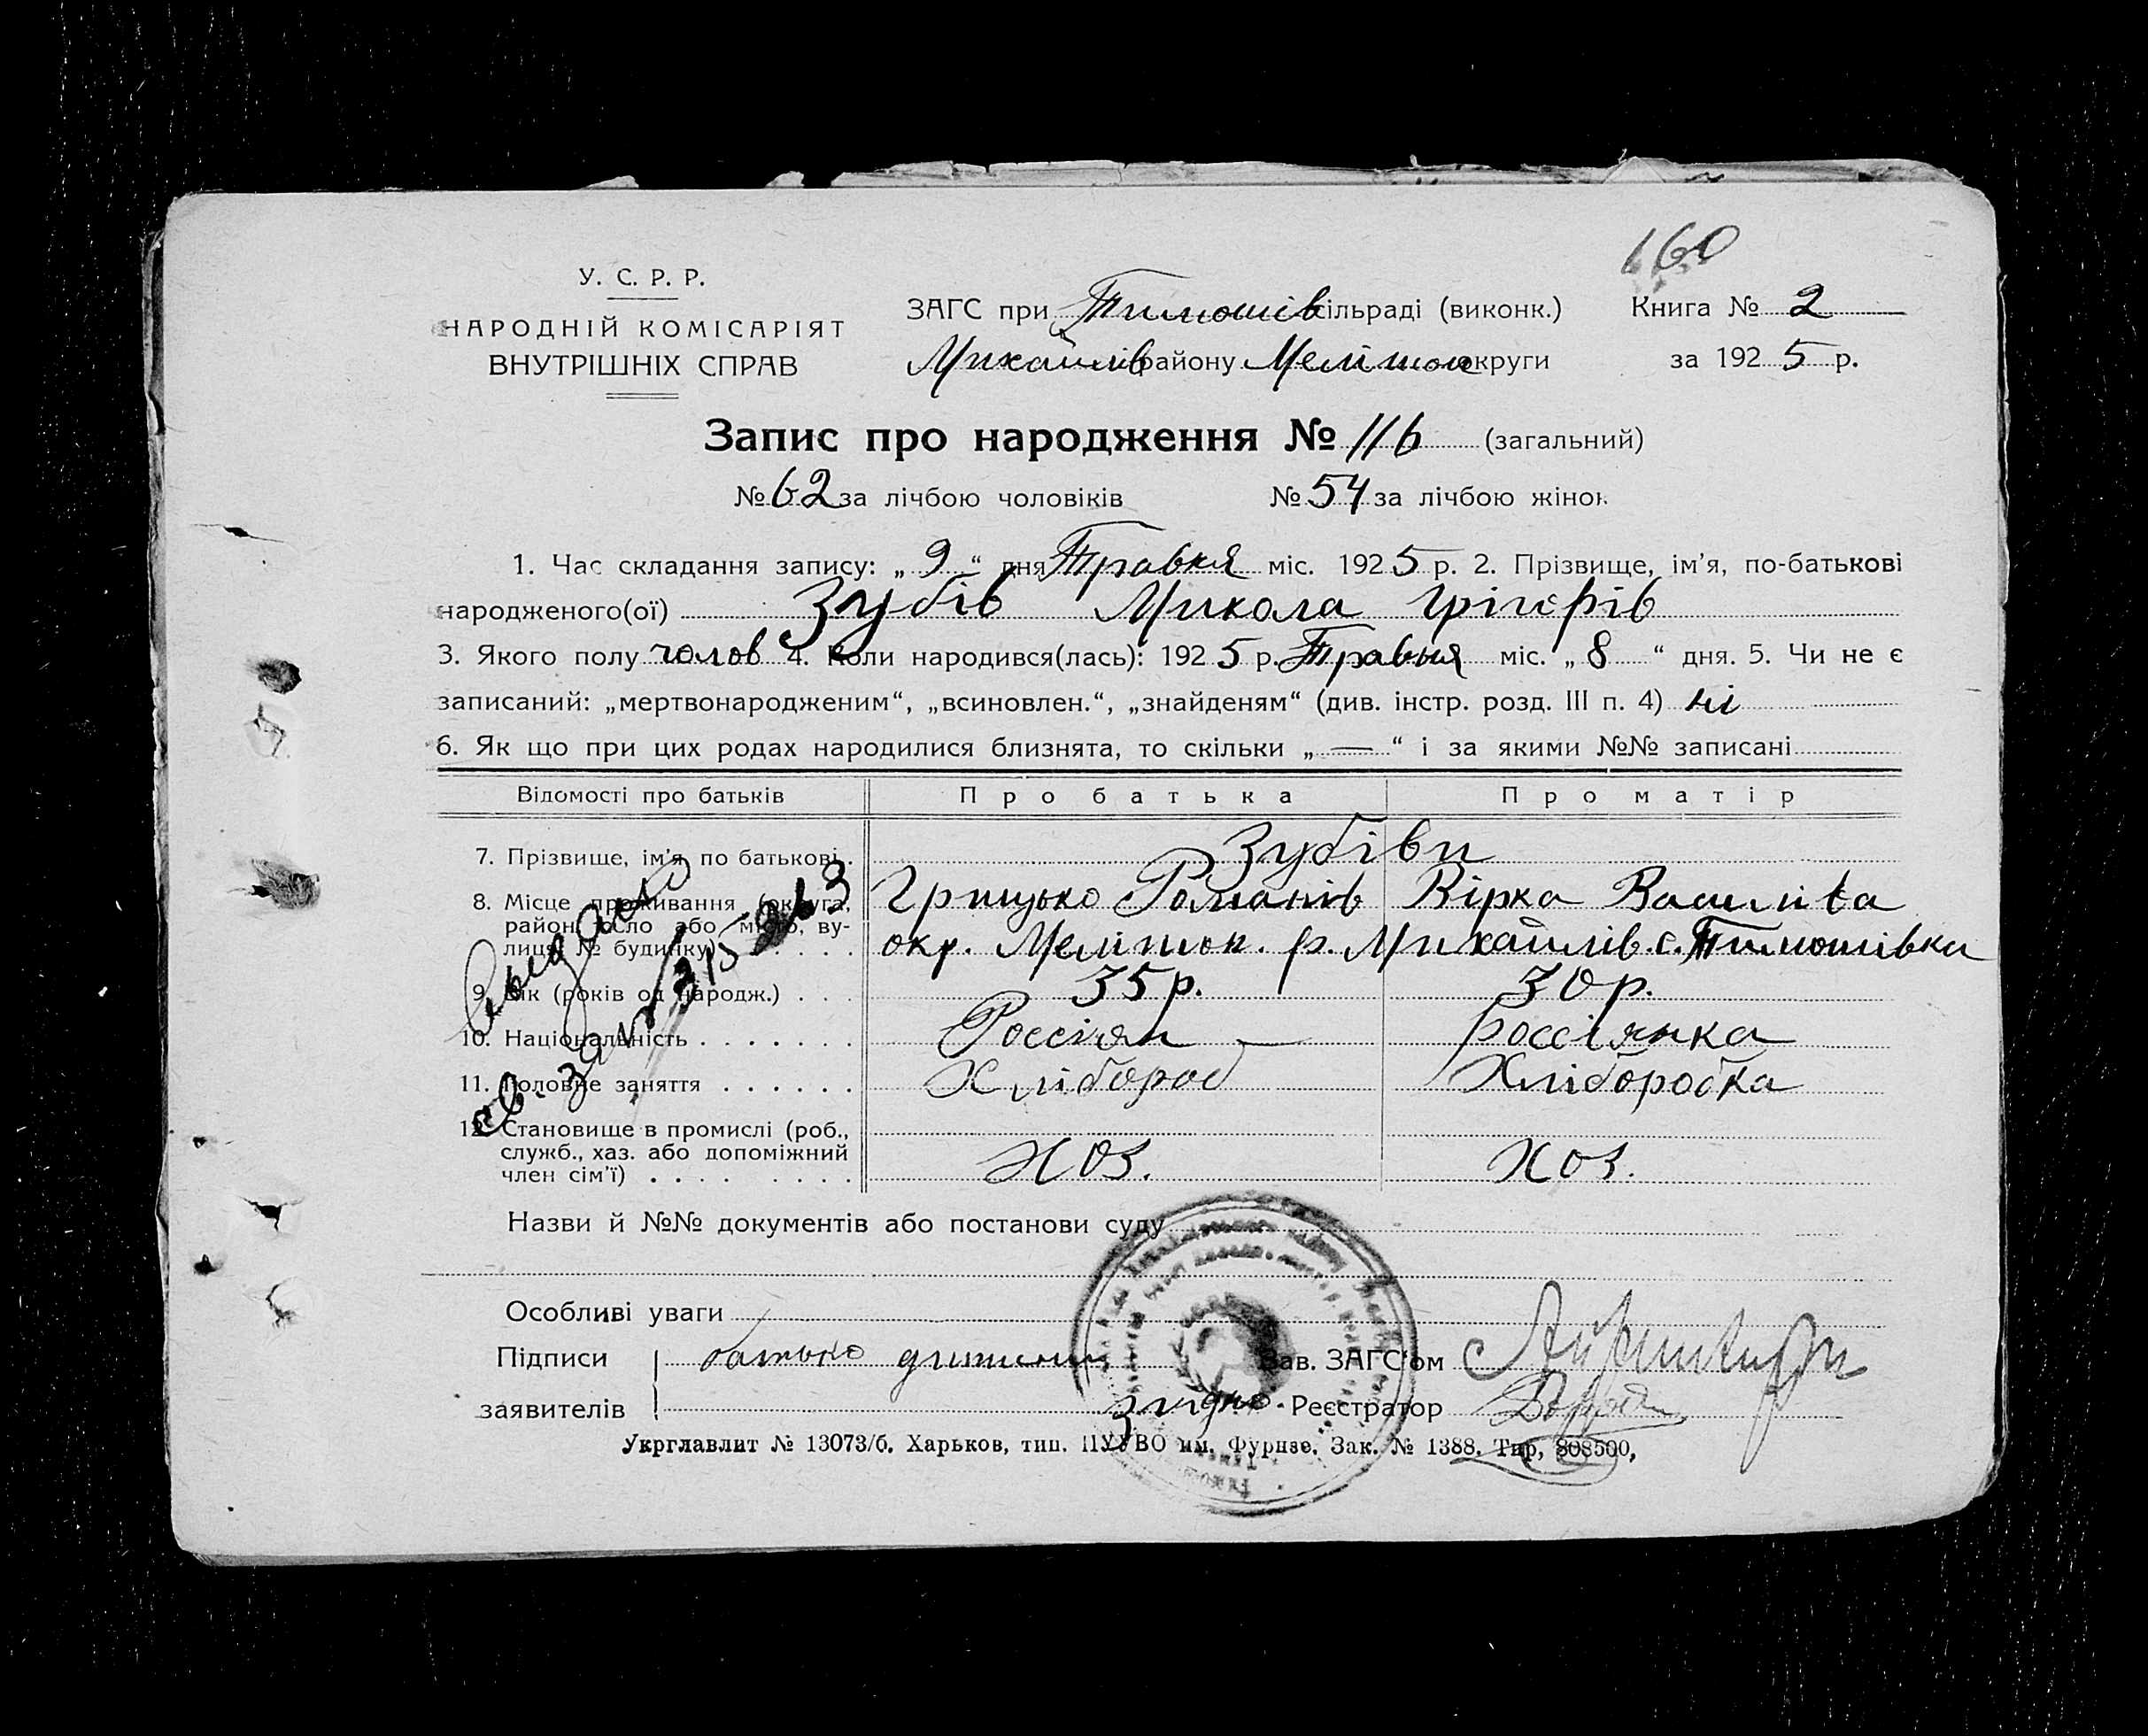 160
У. С. Р. Р.
НАРОДНІЙ КОМІСАРІЯТ
ВНУТРІШНІХ СПРАВ
ЗАГС при Тимошів сільраді (виконк.) Книга № 2
Михайлів району Мелітоп округи за 1925 р.
Запис про народження № 116 (загальний)
№ 62 за лічбою чоловіків № 54 за лічбою жінок
1. Час складання запису: „ 9 “ дня Травня міс. 1925 р. 2. Прізвище, ім’я, по-батькові
народженого(ої) Зубів Микола Грігорів
3. Якого полу чолов 4. Коли народився(лась): 1925 р. Травня міс. „ 8 “ дня. 5. Чи не є
записаний: „мертвонародженим“, „всиновлен.“, „знайденям“ (див. інстр. розд. III п. 4) ні
6. Як що при цих родах народилися близнята, то скільки „ — “ і за якими №№ записані
Відомості про батьків Про батька Про матір
7. Прізвище, ім’я, по батькові . Зубіви
8. Місце проживання (округа, Грицько Романів Вірка Василіва
район, село або місто, ву-
лиця, № будинку) . . . . окр. Мелітоп. р. Михайлів. с. Тимошівка
9. Вік (років од народж.) . . . 35 р. 30 р.
10. Національність . . . . . . . Россіян — россіянка
11. Головне заняття . . . . . . Хлібороб Хліборобка
12. Становище в промислі (роб.,
служб., хаз. або допоміжний
член сім’ї) . . . . . . . . Хоз. Хоз.
Назви й №№ документів або постанови суду
Особливі уваги
Підписи батько дитини Зав. ЗАГС’ом
заявителів згідно. Реєстратор
Укрглавлит № 13073/б. Харьков, тип. ПУУВО им. Фрунзе. Зак. № 1388. Тир, 808500,